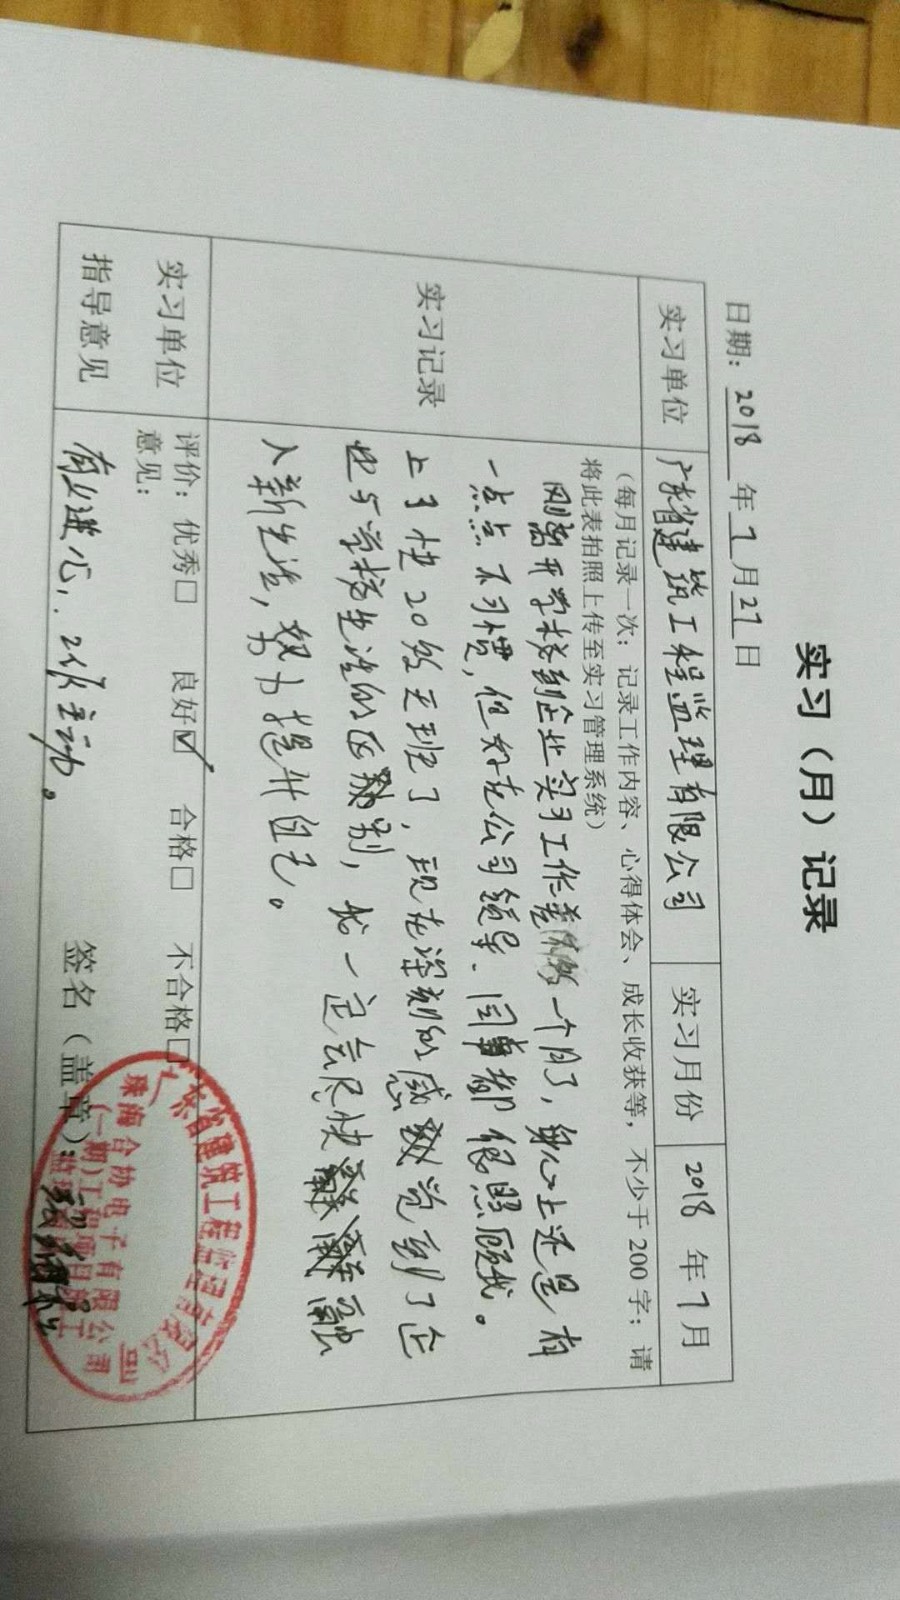 实习（月）记录
日期：2018年7月27日
实习单位 广东省建筑工程监理有限公司 实习月份 2018年7月
（每月记录一次；记录工作内容、心得体会、成长收获等，不少于200字；请
将此表拍照上传至实习管理系统）
实习记录
刚离开学校到企业实习工作差一个月了，身心上还是有
一点点不习惯，但好在公司领导、同事都很照顾我。
上了快20天班了，现在深刻的感觉到了企
业与学校生活的区别，我一定会尽快融
入新生活，努力提升自己。
实习单位
指导意见
评价：优秀□ 良好☑ 合格□ 不合格□
意见：
有上进心，工作主动。
签名（盖章）：
广东省建筑工程监理有限公司
珠海合协电子有限公司
(一期)工程项目